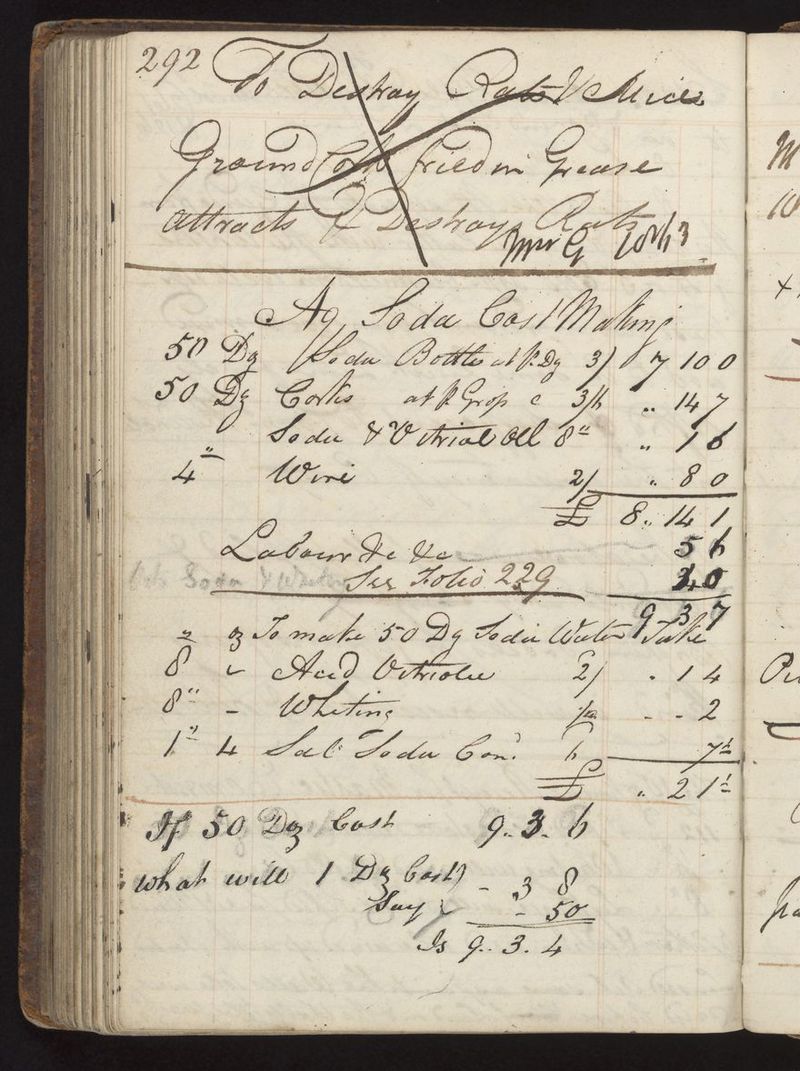 292 To Destroy Rats & Mice
Ground Cork fried in Grease
attracts & Destroys Rats
Mr G
Aq Soda Cost Making
50 Dz Soda Bottles at P. Dz 3/ 7 10 0
50 Dz Corks at P Groß 3/6 " 14 7
Soda & Vitriol Oil 8" " 1 6
4" Wire 2/ " 8 0
£ 8 .. 14 1
Labour &c &c 5 6
See Folio 229 4 0
9 3 7
oz To make 50 Dz Soda Water Take
8 " Acid Vitriolic 2/ . 1 4
8" - Whiting - - 2
1" 4 Sal Soda Con. 6 7½
£ " 2 1½
If 50 Doz Cost 9 .. 3 . 6
what will 1 Dz Cost) - 3 8
Say - 50
Is 9 .. 3 . 4
M
10
+